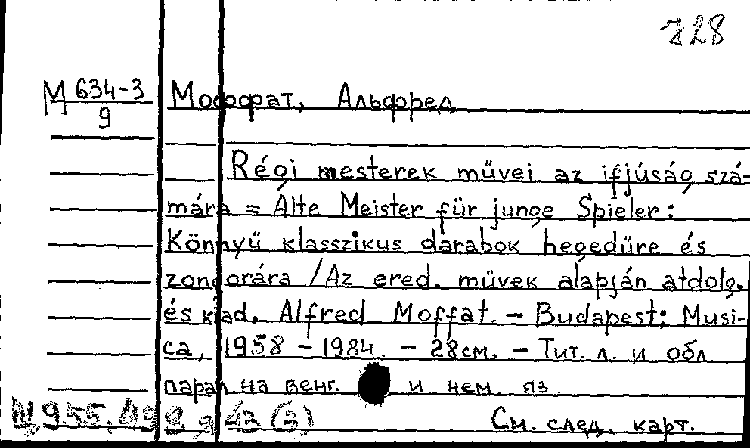 728
М 634-3
9
Моффат, Альфред
Régi mesterek művei az ifjúság szá-
mára = Alte Meister für junge Spieler:
Könnyű klasszikus darabok hegedűre és
zongorára / Az ered. művek alapján átdolg.
és kiad. Alfred Moffat. – Budapest: Musi-
ca, 1958 – 1984. – 28см. – Тит. л. и обл
парал на венг. и нем. яз
См. след. карт.